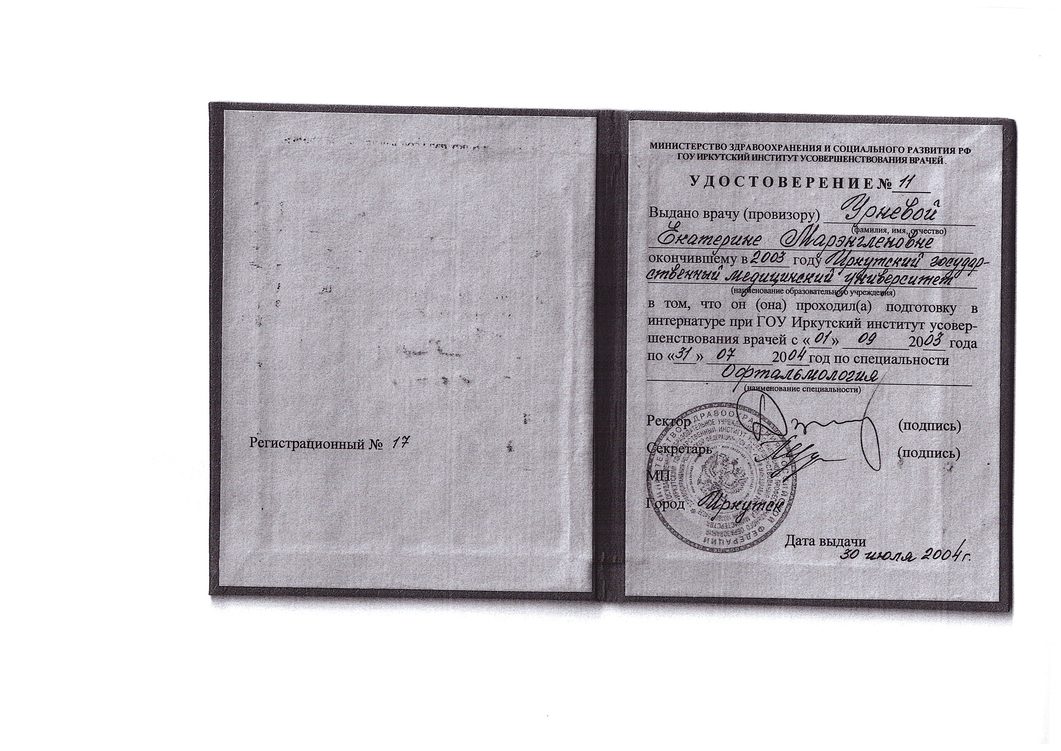 Регистрационный № 17
МИНИСТЕРСТВО ЗДРАВООХРАНЕНИЯ И СОЦИАЛЬНОГО РАЗВИТИЯ РФ
ГОУ ИРКУТСКИЙ ИНСТИТУТ УСОВЕРШЕНСТВОВАНИЯ ВРАЧЕЙ.
УДОСТОВЕРЕНИЕ № 11
Выдано врачу (провизору) Урневой
(фамилия, имя, отчество)
Екатерине Марэнгленовне
окончившему в 2003 году Иркутский государ-
ственный медицинский университет
(наименование образовательного учреждения)
в том, что он (она) проходил(а) подготовку в
интернатуре при ГОУ Иркутский институт усовер-
шенствования врачей с «01» 09 2003 года
по «31» 07 2004 год по специальности
Офтальмология
(наименование специальности)
Ректор (подпись)
Секретарь (подпись)
МП
Город Иркутск
Дата выдачи
30 июля 2004г.